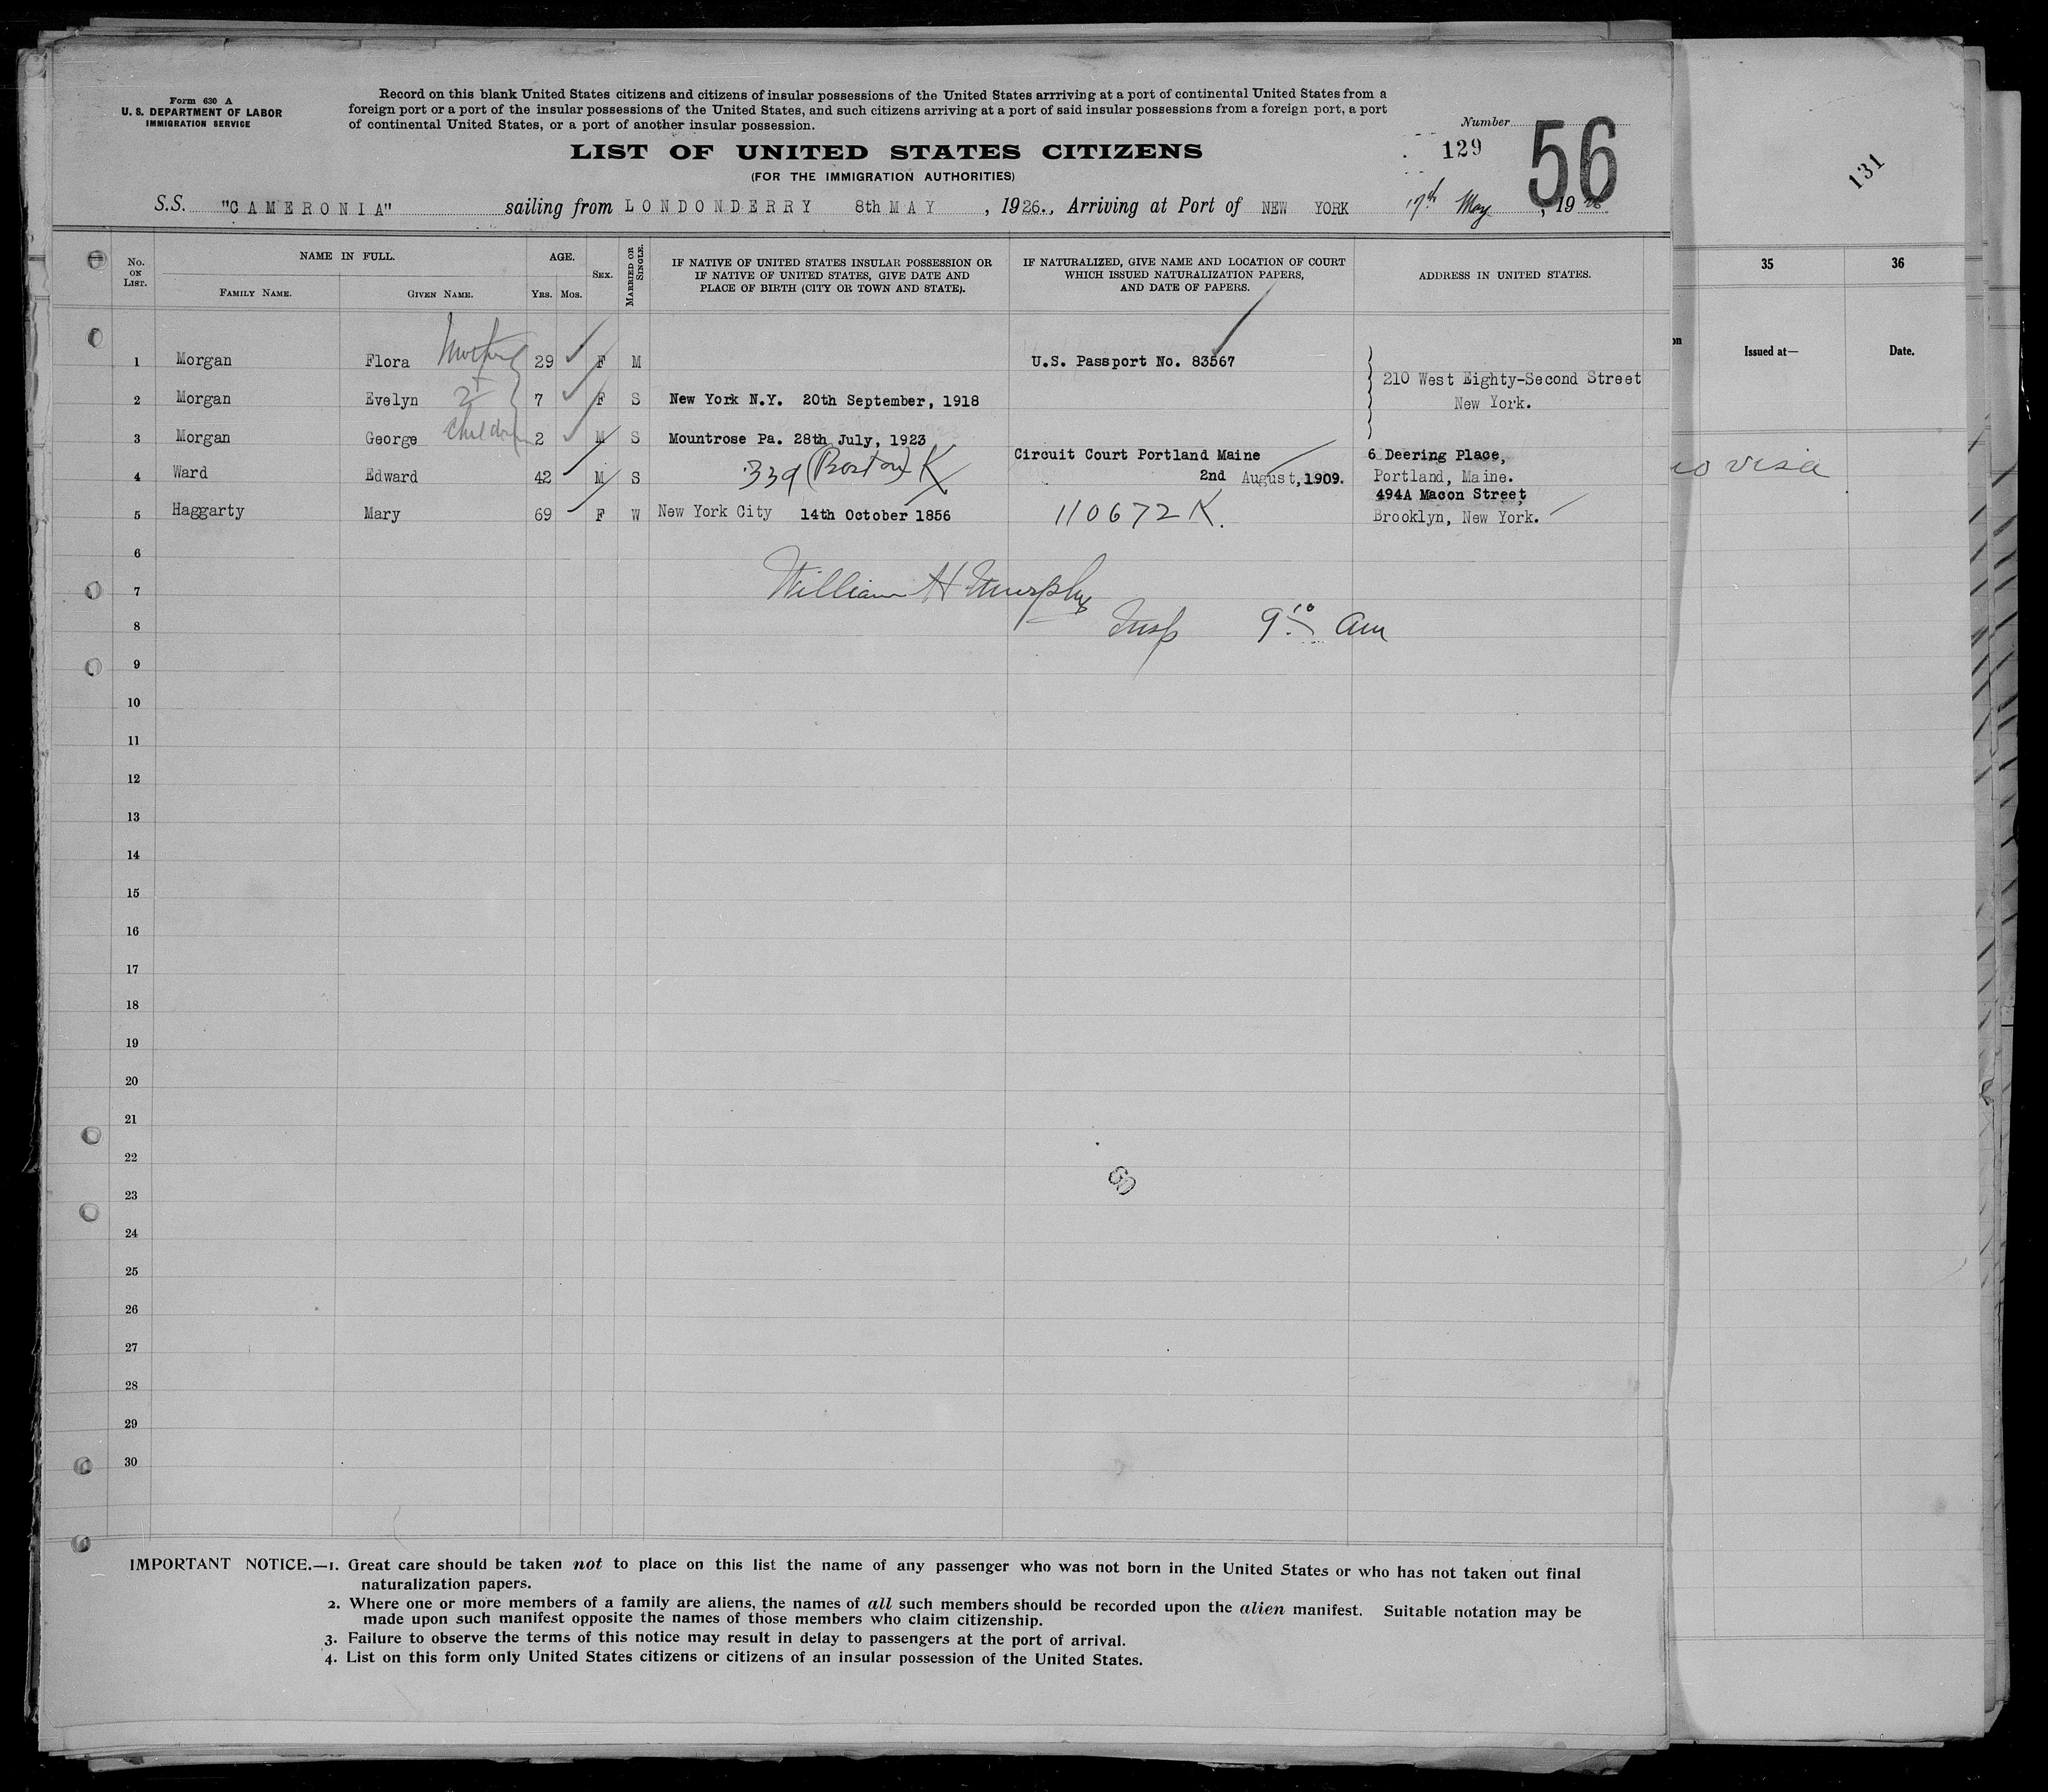 Form 630 A
U. S. DEPARTMENT OF LABOR
IMMIGRATION SERVICE
Record on this blank United States citizens and citizens of insular possessions of the United States arrriving at a port of continental United States from a
foreign port or a port of the insular possessions of the United States, and such citizens arriving at a port of said insular possessions from a foreign port, a port
of continental United States, or a port of another insular possession.
Number
129
56
131
LIST OF UNITED STATES CITIZENS
(FOR THE IMMIGRATION AUTHORITIES)
S.S. "CAMERONIA" sailing from LONDONDERRY 8th MAY, 1926., Arriving at Port of NEW YORK 17th May, 1926
No. ON LIST.
NAME IN FULL.
FAMILY NAME.
GIVEN NAME.
AGE.
YRS. MOS.
SEX.
MARRIED OR SINGLE.
IF NATIVE OF UNITED STATES INSULAR POSSESSION OR
IF NATIVE OF UNITED STATES, GIVE DATE AND
PLACE OF BIRTH (CITY OR TOWN AND STATE).
IF NATURALIZED, GIVE NAME AND LOCATION OF COURT
WHICH ISSUED NATURALIZATION PAPERS,
AND DATE OF PAPERS.
ADDRESS IN UNITED STATES.
35
36
Issued at—
Date.
1 Morgan Flora Mother 29 F M U.S. Passport No. 83567
210 West Eighty-Second Street
2 Morgan Evelyn 2 7 F S New York N.Y. 20th September, 1918
New York.
3 Morgan George Children 2 M S Mountrose Pa. 28th July, 1923
Circuit Court Portland Maine 6 Deering Place,
4 Ward Edward 42 M S 339 (Boston) K 2nd August, 1909. Portland, Maine.
visa
494A Macon Street,
5 Haggarty Mary 69 F W New York City 14th October 1856 110672 K. Brooklyn, New York.
6
7 William H Murphy
8 Insp 9:10 am
9
10
11
12
13
14
15
16
17
18
19
20
21
22
23
24
25
26
27
28
29
30
IMPORTANT NOTICE.—1. Great care should be taken not to place on this list the name of any passenger who was not born in the United States or who has not taken out final
naturalization papers.
2. Where one or more members of a family are aliens, the names of all such members should be recorded upon the alien manifest. Suitable notation may be
made upon such manifest opposite the names of those members who claim citizenship.
3. Failure to observe the terms of this notice may result in delay to passengers at the port of arrival.
4. List on this form only United States citizens or citizens of an insular possession of the United States.